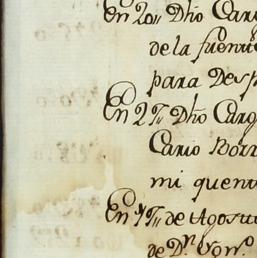 En 20,, Dho Carg
de la fuente
para Desp
En 27,, Dho Carg
Cario Borr
mi quent
En 17,, de Agosto
de Dn. Vonr.